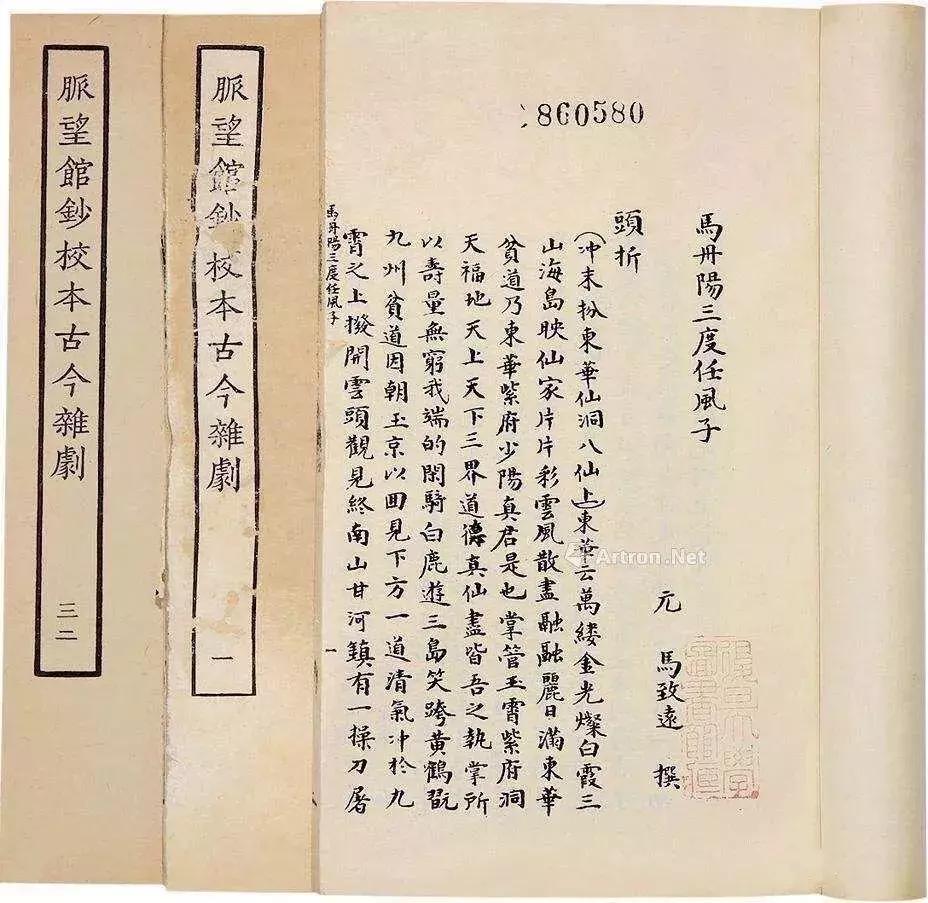 脈望館鈔校本古今雜劇
三二
脈望館鈔校本古今雜劇
一
860580
馬丹陽三度任風子
元 馬致遠 撰
頭折
(冲末扮東華仙洞八仙上)東華云萬縷金光燦白霞三
山海島映仙家片片彩雲風散盡融融麗日滿東華
貧道乃東華紫府少陽真君是也掌管玉霄紫府洞
天福地天上天下三界道德真仙盡皆吾之執掌所
以壽量無窮我端的閑騎白鹿遊三島笑跨黃鶴翫
九州貧道因朝玉京以囬見下方一道清氣冲於九
霄之上撥開雲頭觀見終南山甘河鎮有一操刀屠
馬丹陽三度任風子
一
Artron.Net